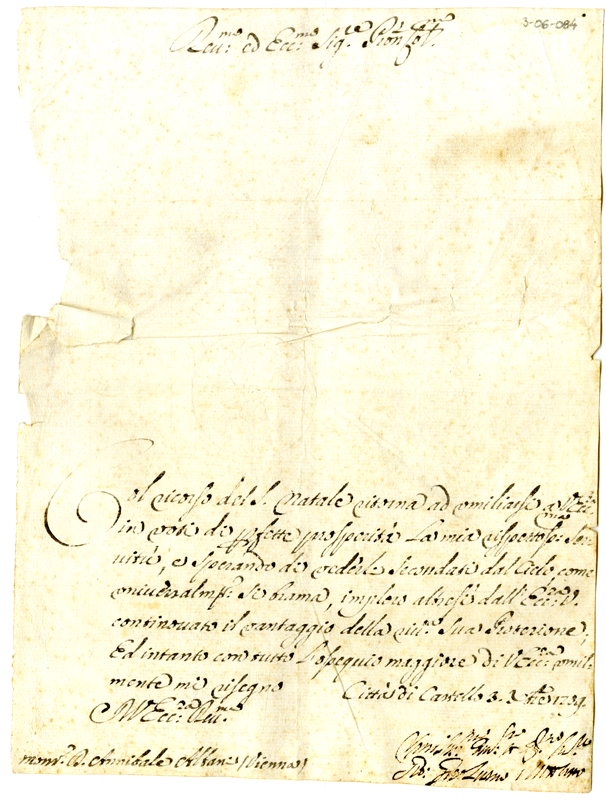 3-06-084
Reu.mo ed Ecc.mo Sig.re Pron Col.mo
Col ricorso del S. Natale ritorna ad umiliarse a V. Ecc.za
in voti de perfette prosperità la mia rispettosa Ser-
uitù, e sperando de vederle secondate dal Cielo, come
se brama, imploro altresì dall' Ecc.za V.
continouato il vantaggio della sua Protezione,
Ed intanto con tutto l'ossequio maggiore di V. Ecc.za umil-
mente me risegno
Città di Castello 3. Xbre
D V. Ecc.za Reu.ma
Monr. D. Annibale Albani (Vienna)